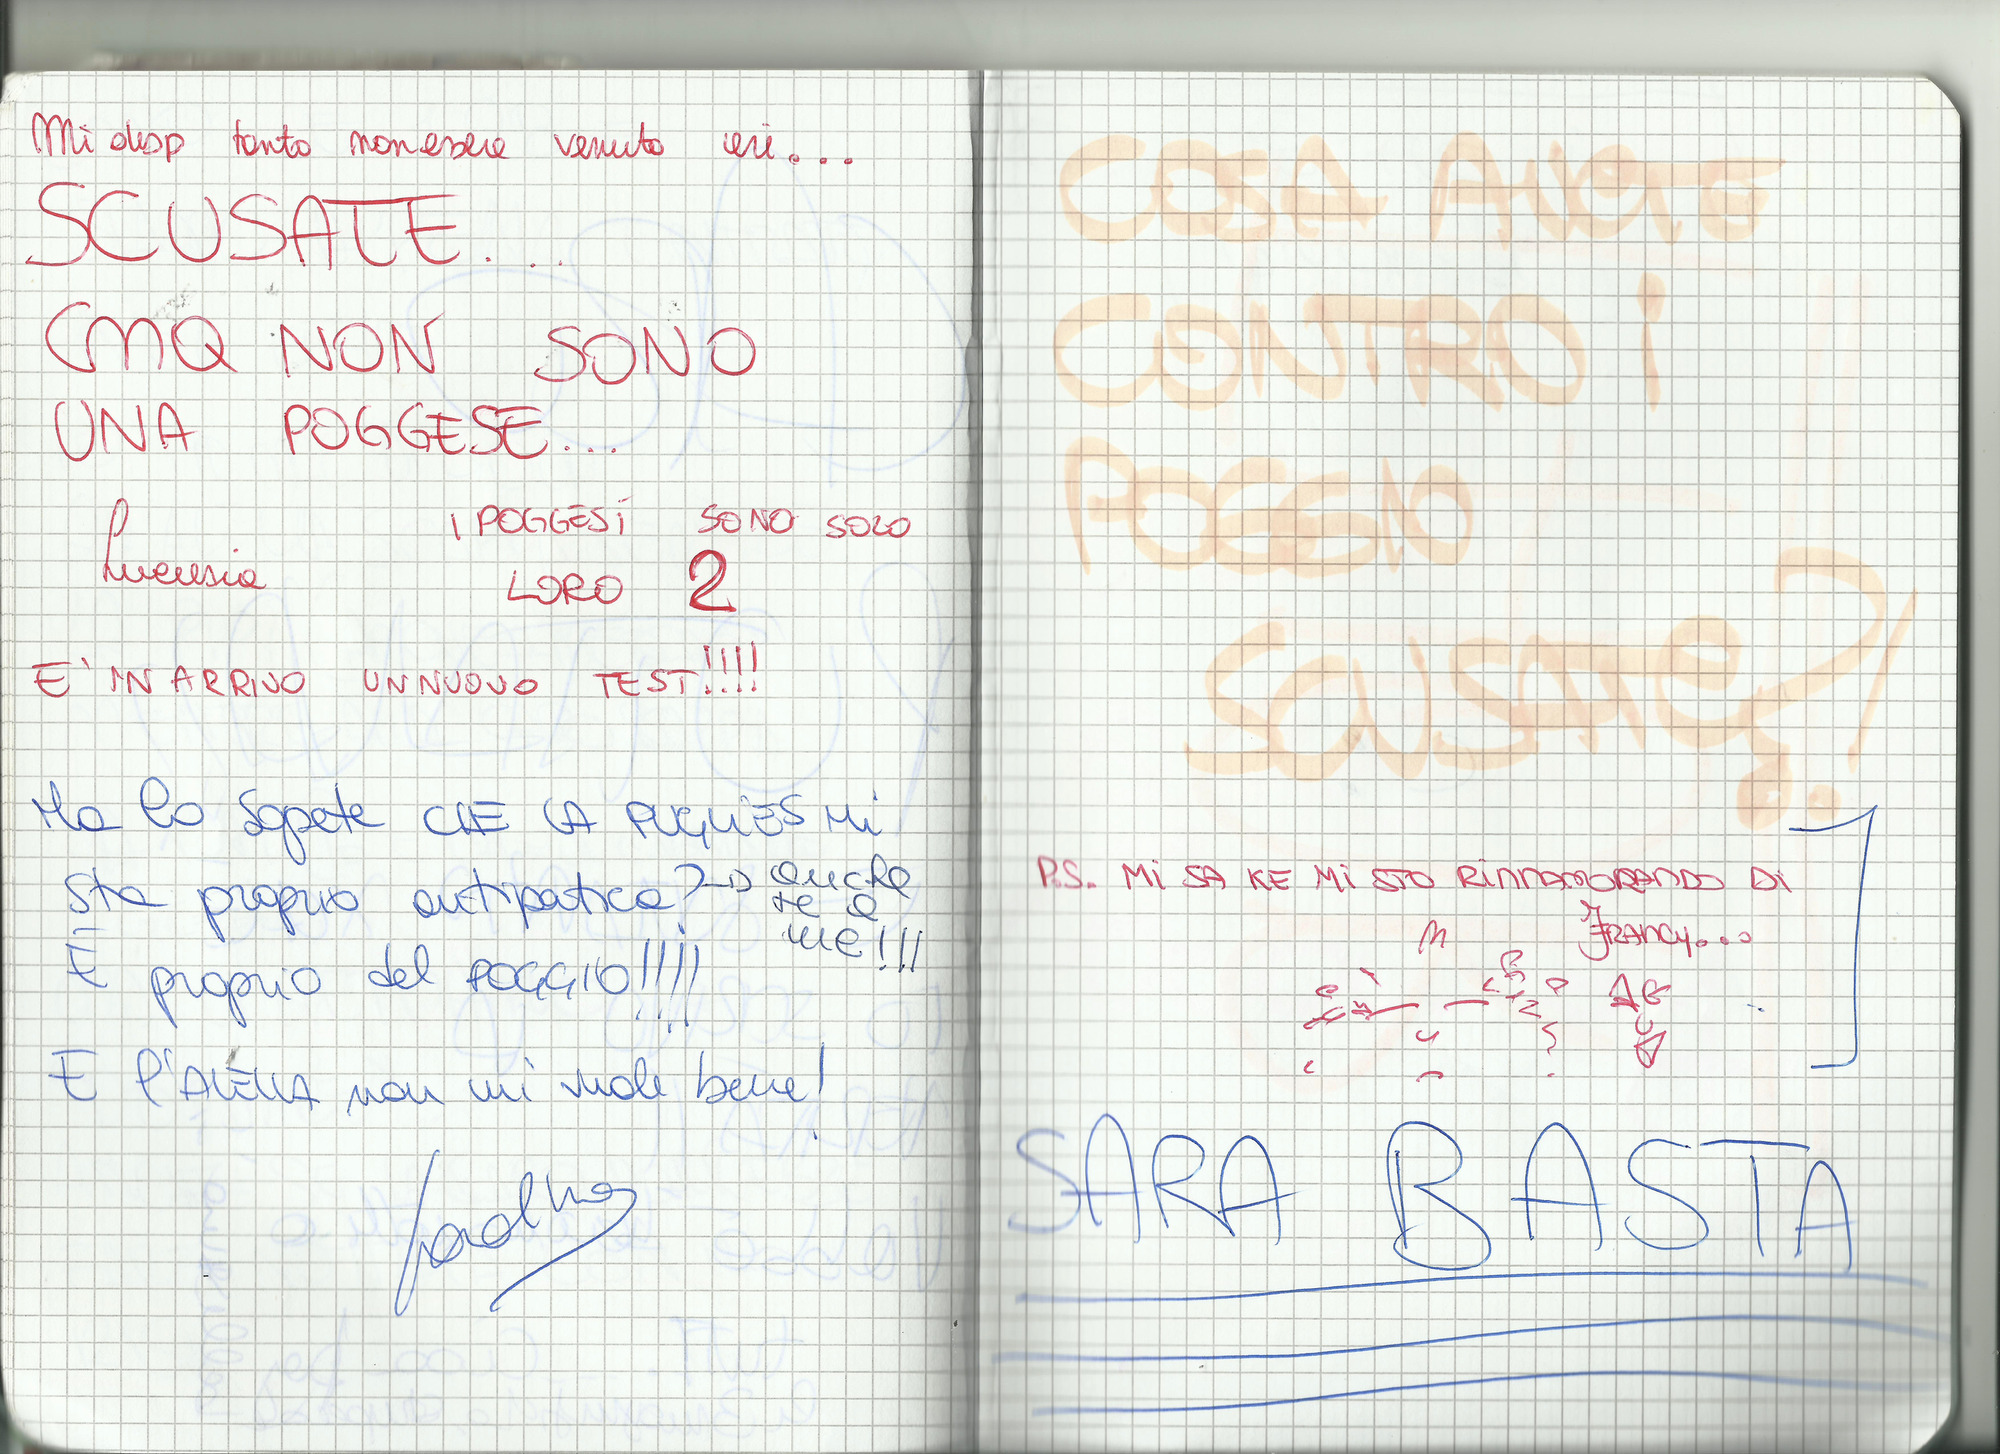 Mi disp tanto non essere venuto ieri...
SCUSATE....
CMQ NON SONO
UNA POGGESE...
Lucrezia
I POGGESI SONO SOLO
LORO 2
E' IN ARRIVO UN NUOVO TEST!!!!
Ma lo sapete CHE LA PUGLIES MI
sta proprio antipatica? anche
te a
me!!!
È proprio del POGGIO!!!!
E l' non mi vuole bene!
COSA AVETE
CONTRO i
POGGIO
SCUSATE?!
P.S. MI SA KE MI STO RINNAMORANDO DI
FRANCY...
SARA BASTA